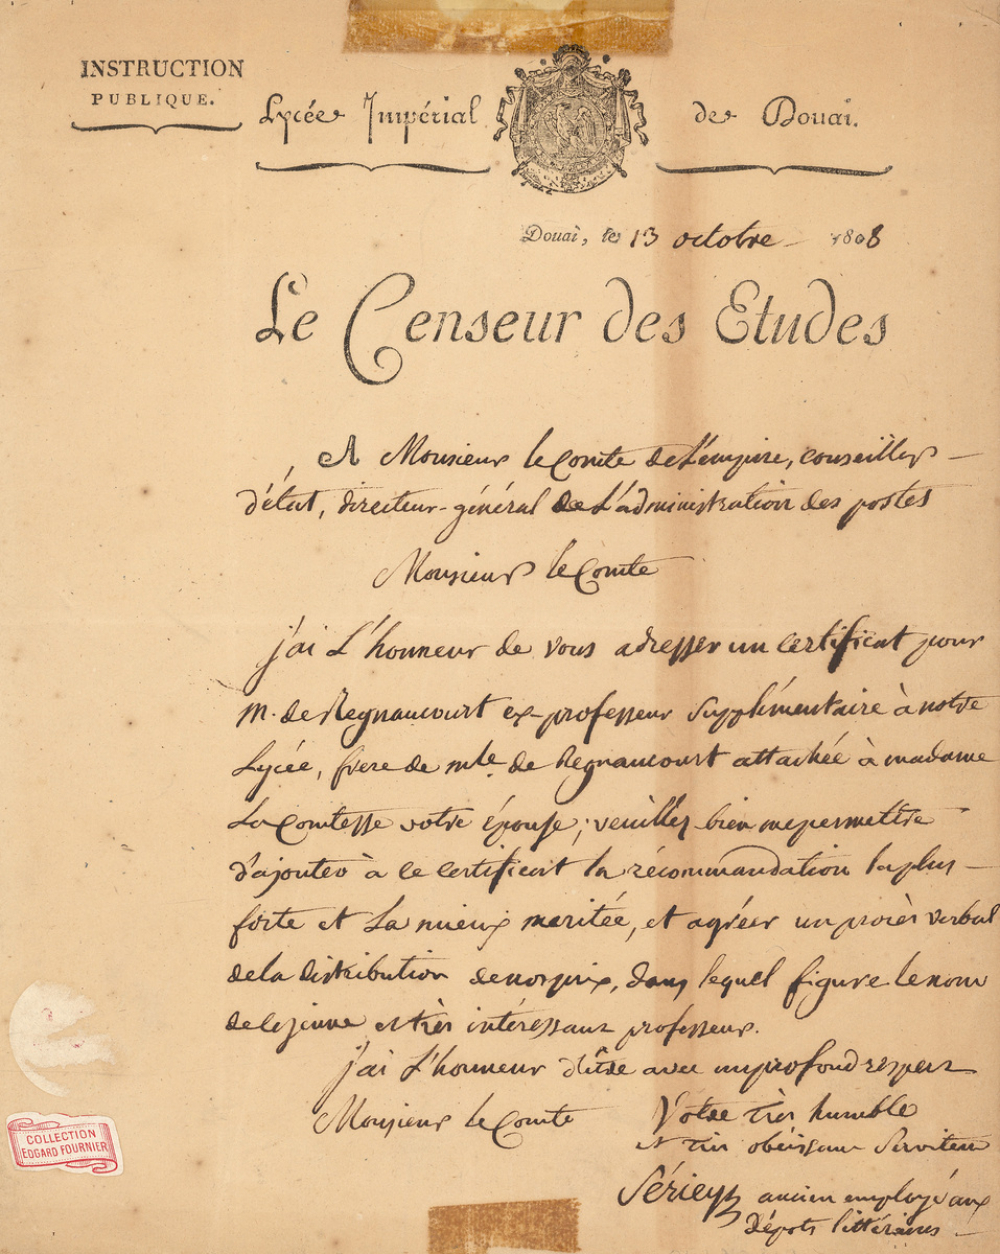 INSTRUCTION
PUBLIQUE.
Lycée Impérial de Douai.
Douai, le 13 octobre 1808
Le Censeur des Etudes
A Monsieur le Comte de L'empire, conseiller
d'état, directeur-général de L'administration des postes
Monsieur le Comte
j'ai L'honneur de vous adresser un certificat pour
M. de Regnaucourt ex-professeur supplémentaire à notre
Lycée, frere de mlle. de Regnaucourt attachée à madame
La Comtesse votre épouse; veuillez bien me permettre
d'ajouter à ce certificat la récommandation la plus
forte et La mieux meritée, et agréer un procès verbal
de la distribution de nos prix, dans lequel figure le nom
de ce jeune et très intéressant professeur.
j'ai L'honneur d'être avec un profond respect
Monsieur le Comte Votre très humble
et très obéissant Serviteur
Sérieys ancien employé aux
dépots littéraires
COLLECTION
EDGARD FOURNIER